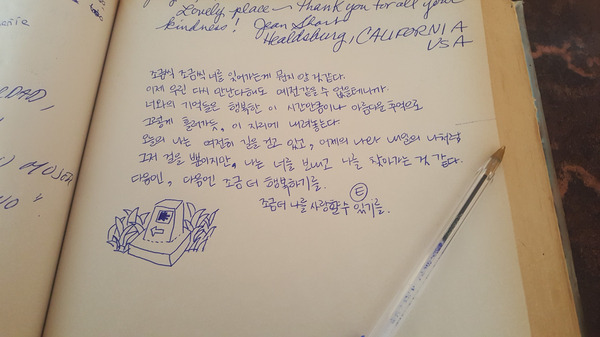 Lovely place – Thank you for all your
kindness! Jean Short
Healdsburg, CALIFORNIA
USA
조금씩 조금씩 너를 잊어가는게 뭔지 알 것 같다.
이제 우린 다시 만난다해도 예전같을 수 없을테니까.
너와의 기억들은 행복한 이 시간만큼이나 아름다운 추억으로
그렇게 흘려가듯, 이 자리에 내려놓는다.
오늘의 나는 여전히 길을 걷고 있고, 어제의 나와 내일의 나처럼
그저 걸을 뿐이지만, 나는 너를 보내고 나를 찾아가는 것 같다.
다음엔, 다음엔 조금 더 행복하기를.
조금 더 나를 사랑할 수 있기를.
E
DAD,
MOSER
NO"